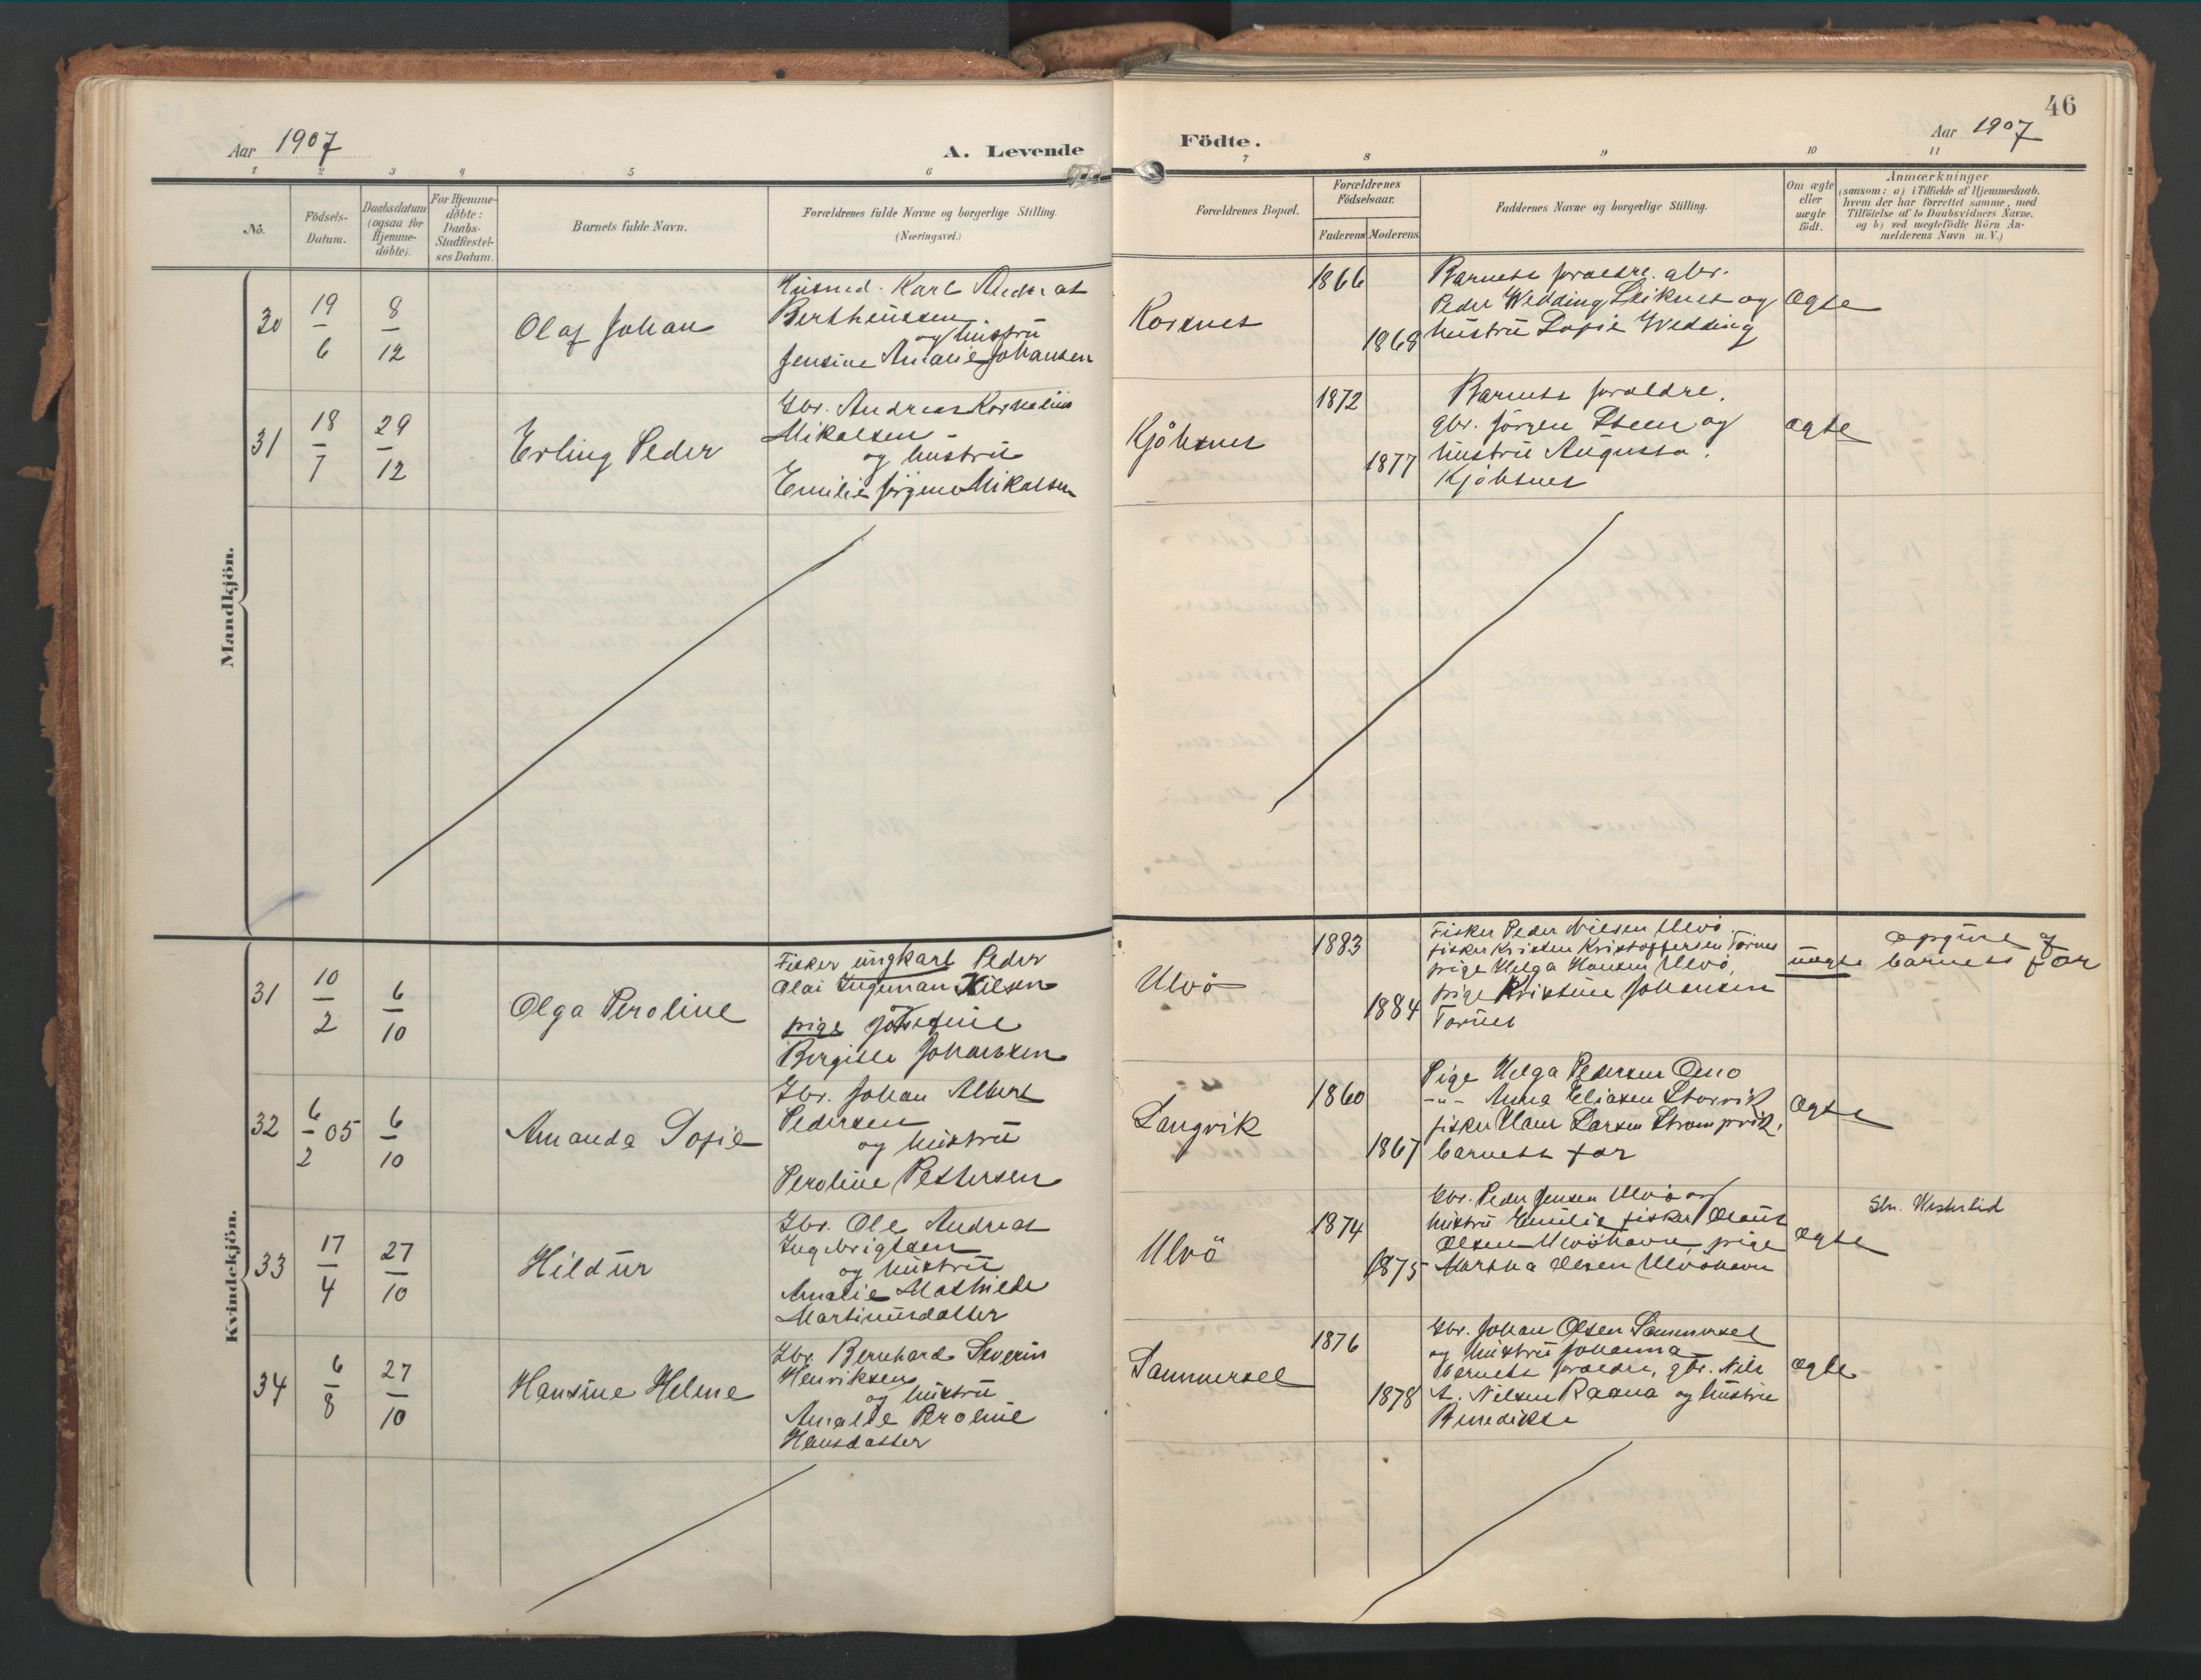 46
Aar 1907
A. Levende
Födte.
Aar 1907
1 2 3 4 5 6 7 8 9 10 11
No.
Födsels-
Datum.
Daabsdatum
(ogsaa for
Hjemme-
döbte).
For Hjemme-
döbte:
Daabs-
Stadfæstel-
ses Datum.
Barnets fulde Navn.
Forældrenes fulde Navne og borgerlige Stilling.
(Næringsvei.)
Forældrenes Bopæl.
Forældrenes
Födselsaar.
Faderens
Moderens
Faddernes Navne og borgerlige Stilling.
Om ægte
eller
uægte
födt.
Anmærkninger
(saasom: a) i Tilfælde af Hjemmedaab,
hvem der har forrettet samme, med
Tilföielse af to Daabsvidners Navne,
og b) ved uægtefödte Börn An-
melderens Navn m. V.)
Mandkjön.
30
19
6
8
12
Olaf Johan
Husmd. Karl Andreas
Bertheussen
og hustrü
Jensine Amalie Johansen
1866
1868
Barnets foraeldre. gbr.
Peder Wedding Leiknes og
hustrü Sofie Wedding
Ægte
31
18
7
29
12
Erling Peder
Gbr. Andreas Kornelius
Mikalsen
og hustrü
Emilie Jörgine Mikalsen
Kjöbsnes
1872
1877
Barnets foraeldre.
gbr. Jörgen Steen og
hustrü Augusta
Kjöbsnes
ægte
Kvindekjön.
31
10
2
6
10
Olga Peroline
Fisker ungkarl Peder
Olai Ingeman Nilsen
og
pige Josefine
Bergitte Johansen
Ulvö
1883
1884
Fisker Peder Nilsen Ulvö
fisker Kristen Kristoffersen Tornes
pige Helga Hansen Ulvö,
pige Kristine Johansen
Tornes
uægte
opgive af
barnets far
32
6
2
05
6
10
Amanda Sofie
Gbr. Johan Albert
Pedersen
og hustrü
Peroline Pettersen
Langvik
1860
1867
Pige Helga Pedersen
-"- Anna Eliasen Storvik
fisker Hans Larsen
barnets far
Ægte
33
17
4
27
10
Hildur
Gbr. Ole Andreas
Ingebrigtsen
og hustrü
Amalie Mathilde
Martinusdatter
Ulvö
1874
1875
Gbr. Peder Jensen Ulvö og
hustrü Emilie fisker Olaus
Olsen Ulvöhavn, pige
Martha Olsen Ulvöhavn
Ægte
34
6
8
27
10
Hansine Helene
Gbr. Bernhard Severin
Henriksen
og hustrü
Amalie Peroline
Hansdatter
Sammersel
1876
1878
Gbr. Johan Olsen Sammersel
og hustrü Johanna
barnets foraeldre, gbr. Nils
A. Nilsen Raana og hustrü
Benedikte
ægte